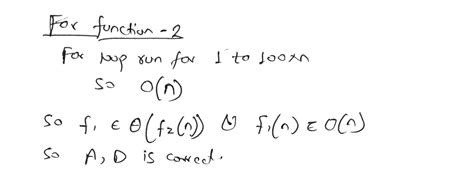 For function - 2
For loop run for 1 to 100*n
so O(n)
so f₁ ∈ θ(f₂(n)) & f₁(n) ∈ O(n)
so A, D is correct.